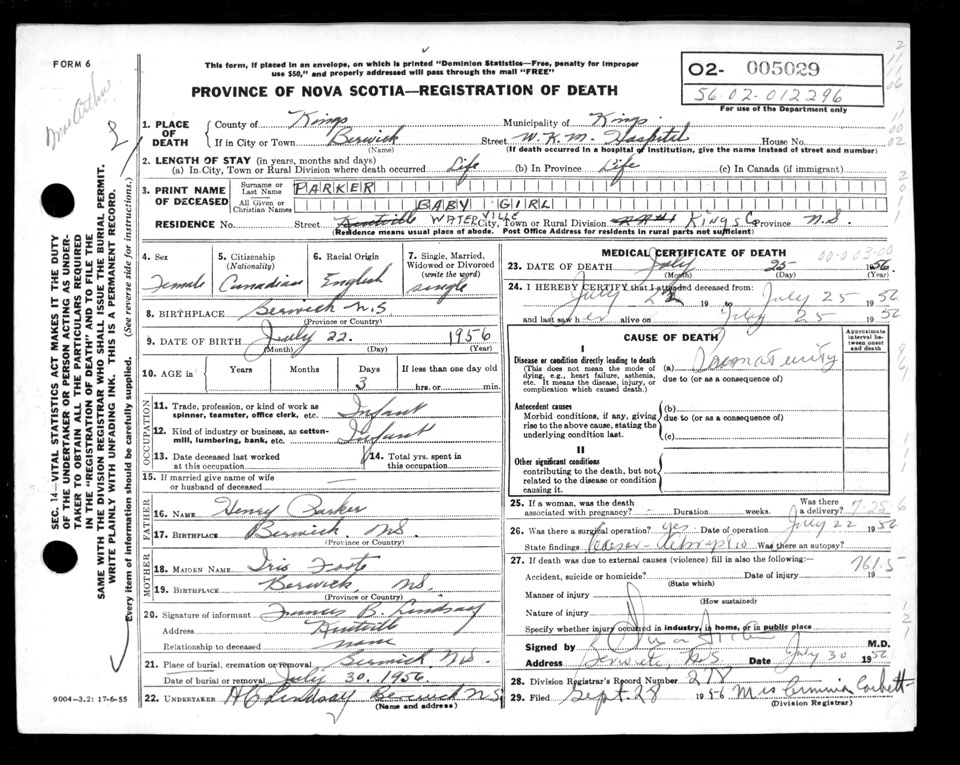 FORM 6
This form, if placed in an envelope, on which is printed "Dominion Statistics—Free, penalty for improper
use $50," and properly addressed will pass through the mail "FREE"
PROVINCE OF NOVA SCOTIA—REGISTRATION OF DEATH
O2- 005029
56-02-012296
For use of the Department only
MacArthur
SEC. 14—VITAL STATISTICS ACT MAKES IT THE DUTY
OF THE UNDERTAKER OR PERSON ACTING AS UNDER-
TAKER TO OBTAIN ALL THE PARTICULARS REQUIRED
IN THE "REGISTRATION OF DEATH" AND TO FILE THE
SAME WITH THE DIVISION REGISTRAR WHO SHALL ISSUE THE BURIAL PERMIT.
WRITE PLAINLY WITH UNFADING INK. THIS IS A PERMANENT RECORD.
Every item of information should be carefully supplied. (See reverse side for instructions.)
1. PLACE OF DEATH
County of Kings Municipality of Kings
If in City or Town Berwick Street W.K.M. Hospital House No.
(Name) (If death occurred in a hospital or institution, give the name instead of street and number)
2. LENGTH OF STAY (in years, months and days)
(a) In City, Town or Rural Division where death occurred Life (b) In Province Life (c) In Canada (if immigrant)
3. PRINT NAME OF DECEASED
Surname or Last Name PARKER
All Given or Christian Names BABY GIRL
RESIDENCE No. Street Kentville WATERVILLE City, Town or Rural Division RR#1 KINGS C Province N.S.
(Residence means usual place of abode. Post Office Address for residents in rural parts not sufficient)
4. Sex
Female
5. Citizenship
(Nationality)
Canadian
6. Racial Origin
English
7. Single, Married,
Widowed or Divorced
(write the word)
single
8. BIRTHPLACE Berwick N.S
(Province or Country)
9. DATE OF BIRTH July 22. 1956
(Month) (Day) (Year)
10. AGE in Years Months Days If less than one day old
3 hrs. or min.
OCCUPATION
11. Trade, profession, or kind of work as
spinner, teamster, office clerk, etc. Infant
12. Kind of industry or business, as cotton-
mill, lumbering, bank, etc. Infant
13. Date deceased last worked
at this occupation
14. Total yrs. spent in
this occupation
15. If married give name of wife
or husband of deceased —
FATHER
16. NAME Henry Parker
17. BIRTHPLACE Berwick, NS.
(Province or Country)
MOTHER
18. MAIDEN NAME Iris Foote
19. BIRTHPLACE Berwick, NS
(Province or Country)
20. Signature of informant Francis B. Lindsay
Address Kentville
Relationship to deceased none
21. Place of burial, cremation or removal Berwick N.S.
Date of burial or removal July 30. 1956.
22. UNDERTAKER Lindsay Berwick N.S.
(Name and address)
9004—3.2: 17-6-55
MEDICAL CERTIFICATE OF DEATH
00-003-00
23. DATE OF DEATH July 25 1956.
(Month) (Day) (Year)
24. I HEREBY CERTIFY that I attended deceased from:
July 22 19 to July 25 1956
and last saw her alive on July 25 1956
CAUSE OF DEATH
Approximate
interval be-
tween onset
and death
I
Disease or condition directly leading to death
(This does not mean the mode of
dying, e.g., heart failure, asthenia,
etc. It means the disease, injury, or
complication which caused death.)
(a) Prematurity
due to (or as a consequence of)
Antecedent causes
Morbid conditions, if any, giving
rise to the above cause, stating the
underlying condition last.
(b)
due to (or as a consequence of)
(c)
II
Other significant conditions
contributing to the death, but not
related to the disease or condition
causing it.
25. If a woman, was the death
associated with pregnancy? - Duration weeks. Was there
a delivery?
7-25-6
26. Was there a surgical operation? yes Date of operation July 22 1956
State findings Was there an autopsy?
27. If death was due to external causes (violence) fill in also the following:—
761.5
Accident, suicide or homicide? Date of injury 19
(State which)
Manner of injury
(How sustained)
Nature of injury
Specify whether injury occurred in industry, in home, or in public place
Signed by M.D.
Address Berwick, N.S Date July 30 1956
28. Division Registrar's Record Number 278
29. Filed Sept. 28 1956 Mrs Corbett
(Division Registrar)